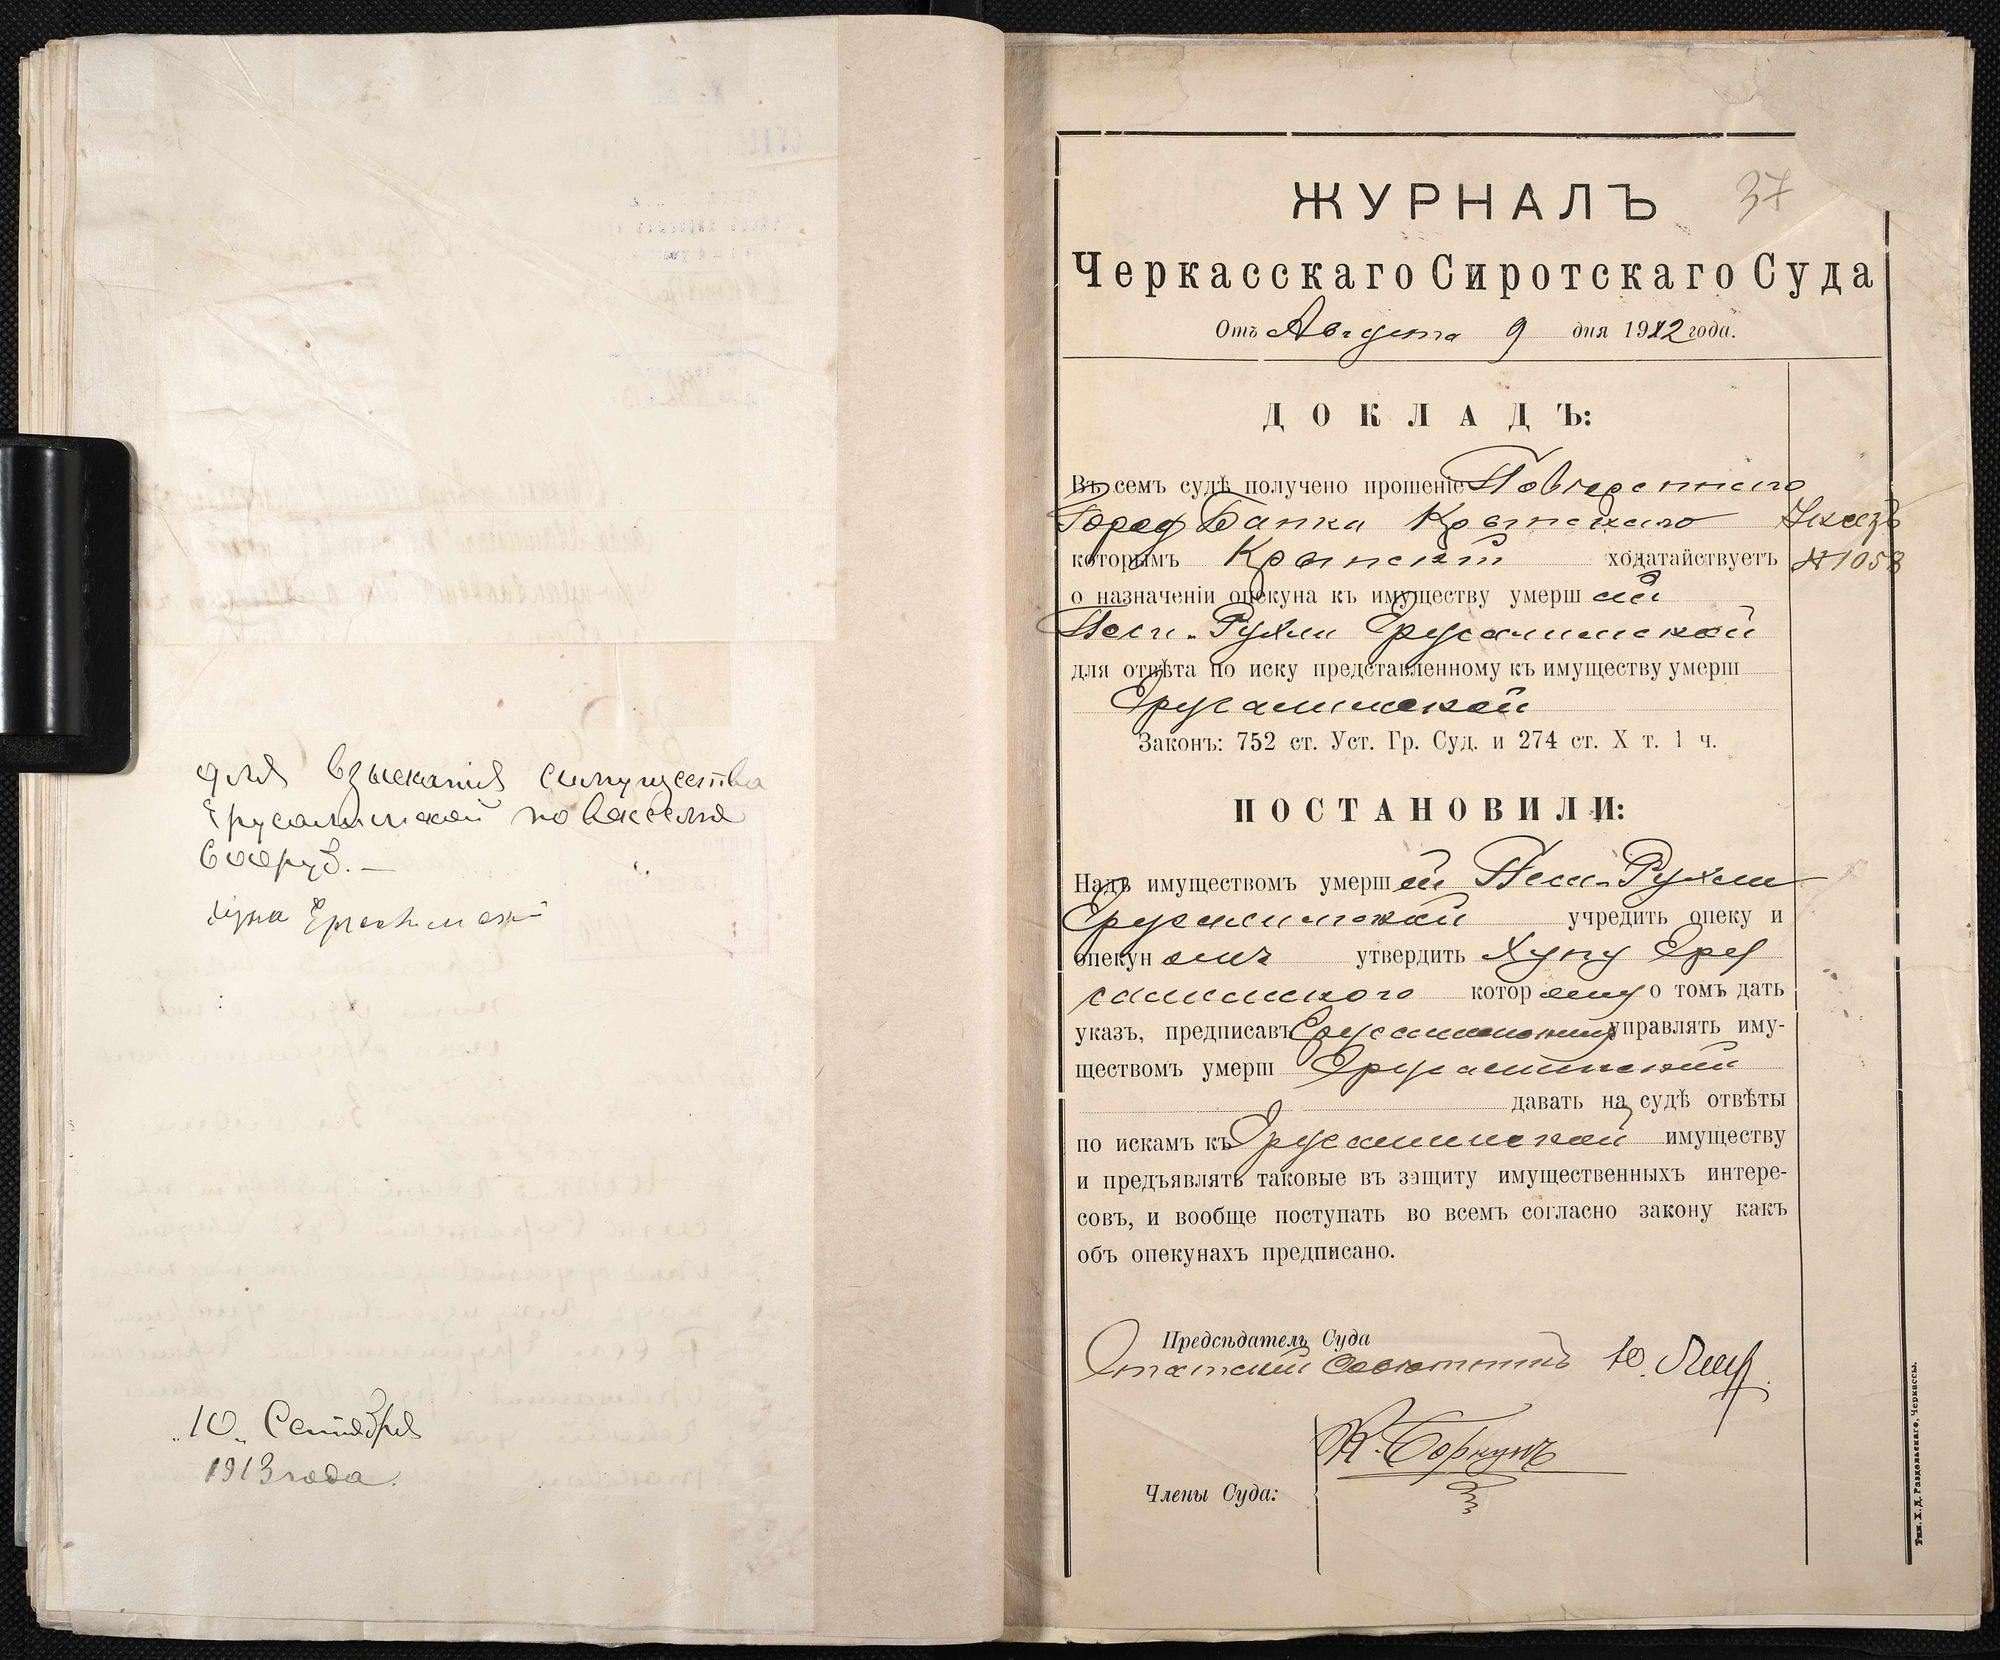 для взысканія съ имущества
Ерусалимской по векселю
руб. —
Хуна Ерусалимскій
„10„ Сентября
1913 года.
37
ЖУРНАЛЪ
Черкасскаго Сиротскаго Суда
Отъ Августа 9 дня 1912 года.
ДОКЛАДЪ:
Въ семъ судѣ получено прошеніе Повѣреннаго
Город Банка Крымскаго
Указъ
которымъ Крымскій ходатайствуетъ
№ 1058
о назначеніи опекуна къ имуществу умерш ей
Песи-Рухли Ерусалимской
для отвѣта по иску представленному къ имуществу умерш
Ерусалимской
Законъ: 752 ст. Уст. Гр. Суд. и 274 ст. X т. 1 ч.
ПОСТАНОВИЛИ:
Надъ имуществомъ умерш ей Песи-Рухли
Ерусалимской учредить опеку и
опекун омъ утвердить Хуну Еру
салимскаго котор ому о томъ дать
указъ, предписавъ Ерусалимскому управлять иму-
ществомъ умерш Ерусалимской
давать на судѣ отвѣты
по искамъ къ Ерусалимской имуществу
и предъявлять таковые въ защиту имущественныхъ интере-
совъ, и вообще поступать во всемъ согласно закону какъ
объ опекунахъ предписано.
Предсѣдатель Суда
Статскій Совѣтникъ Ю.
К. Боркунъ
Члены Суда:
Тип. Х. Д. Раздольскаго, Черкассы.